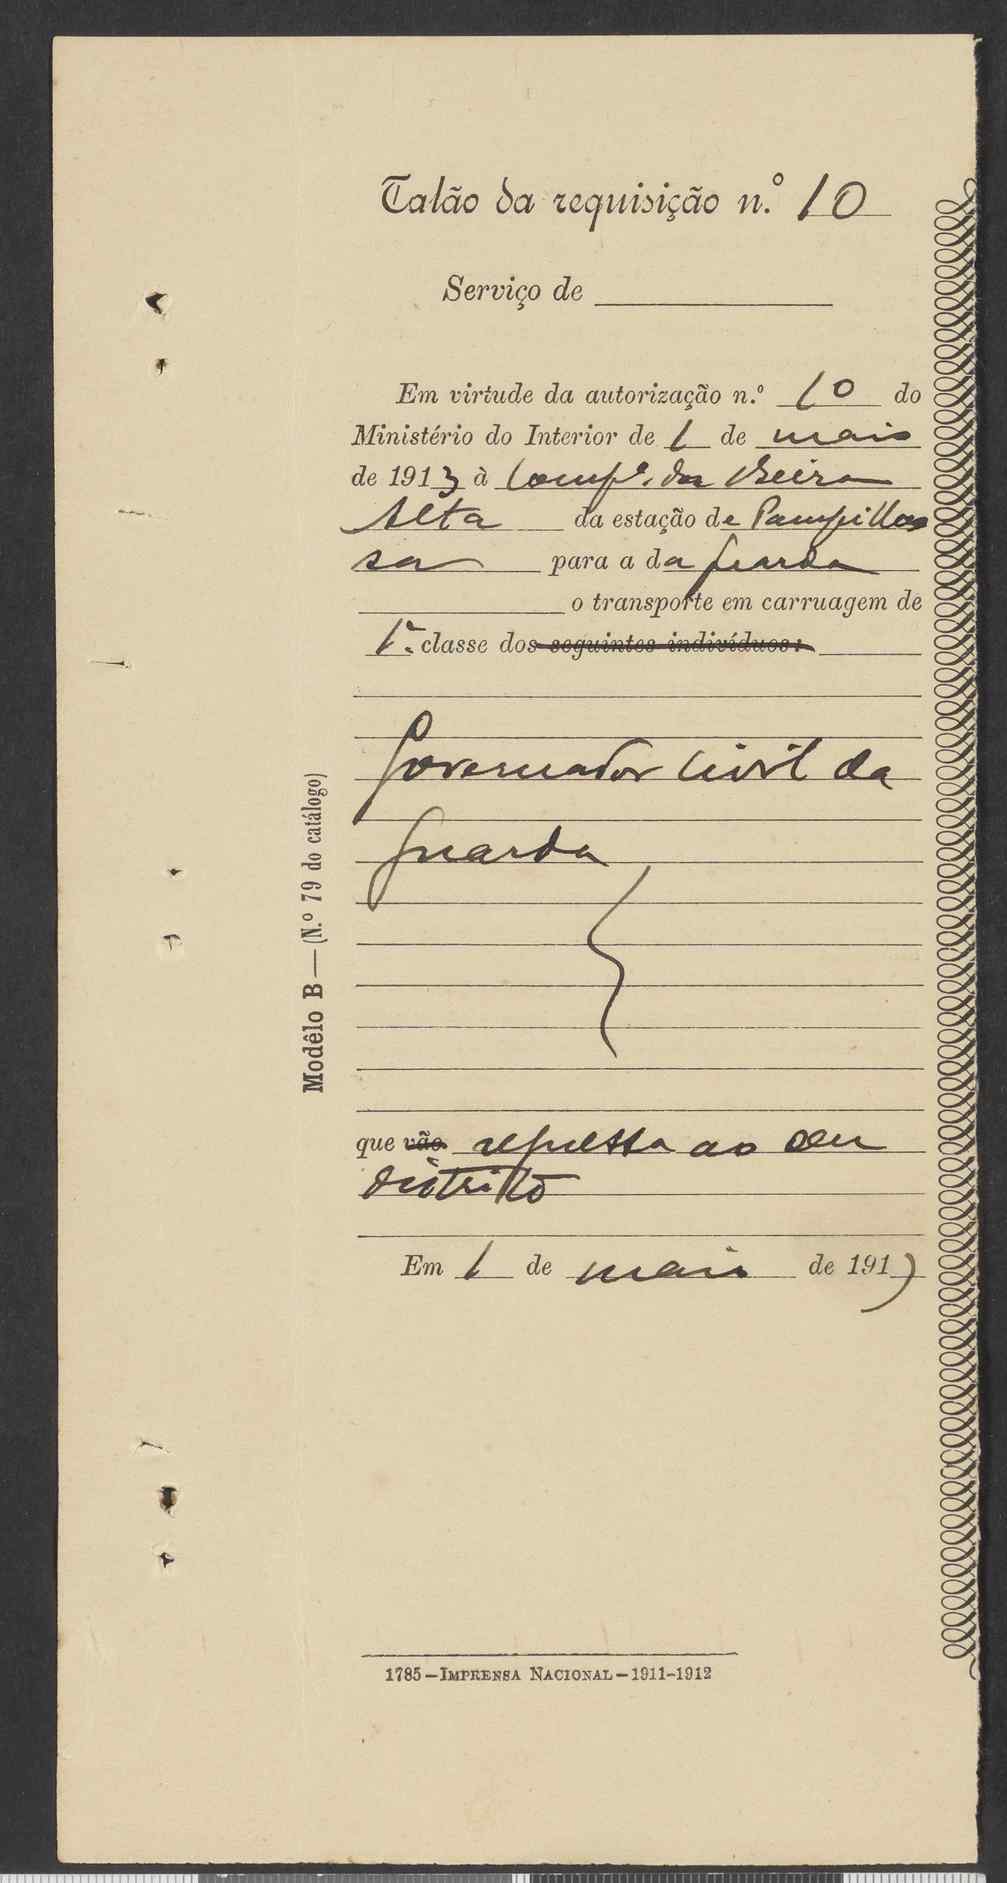 Talão da requisição n.º 10
Serviço de
Em virtude da autorização n.º 10 do
Ministério do Interior de 1 de maio
de 1913 à Comp.ª da Beira
Alta da estação de Pampilho
sa para a da Guarda
o transporte em carruagem de
1.ª classe dos seguintes indivíduos:
Governador Civil da
Guarda
que vão regressa ao seu
districto
Em 1 de maio de 191
Modêlo B—(N.º 79 do catálogo)
1785—IMPRENSA NACIONAL—1911-1912